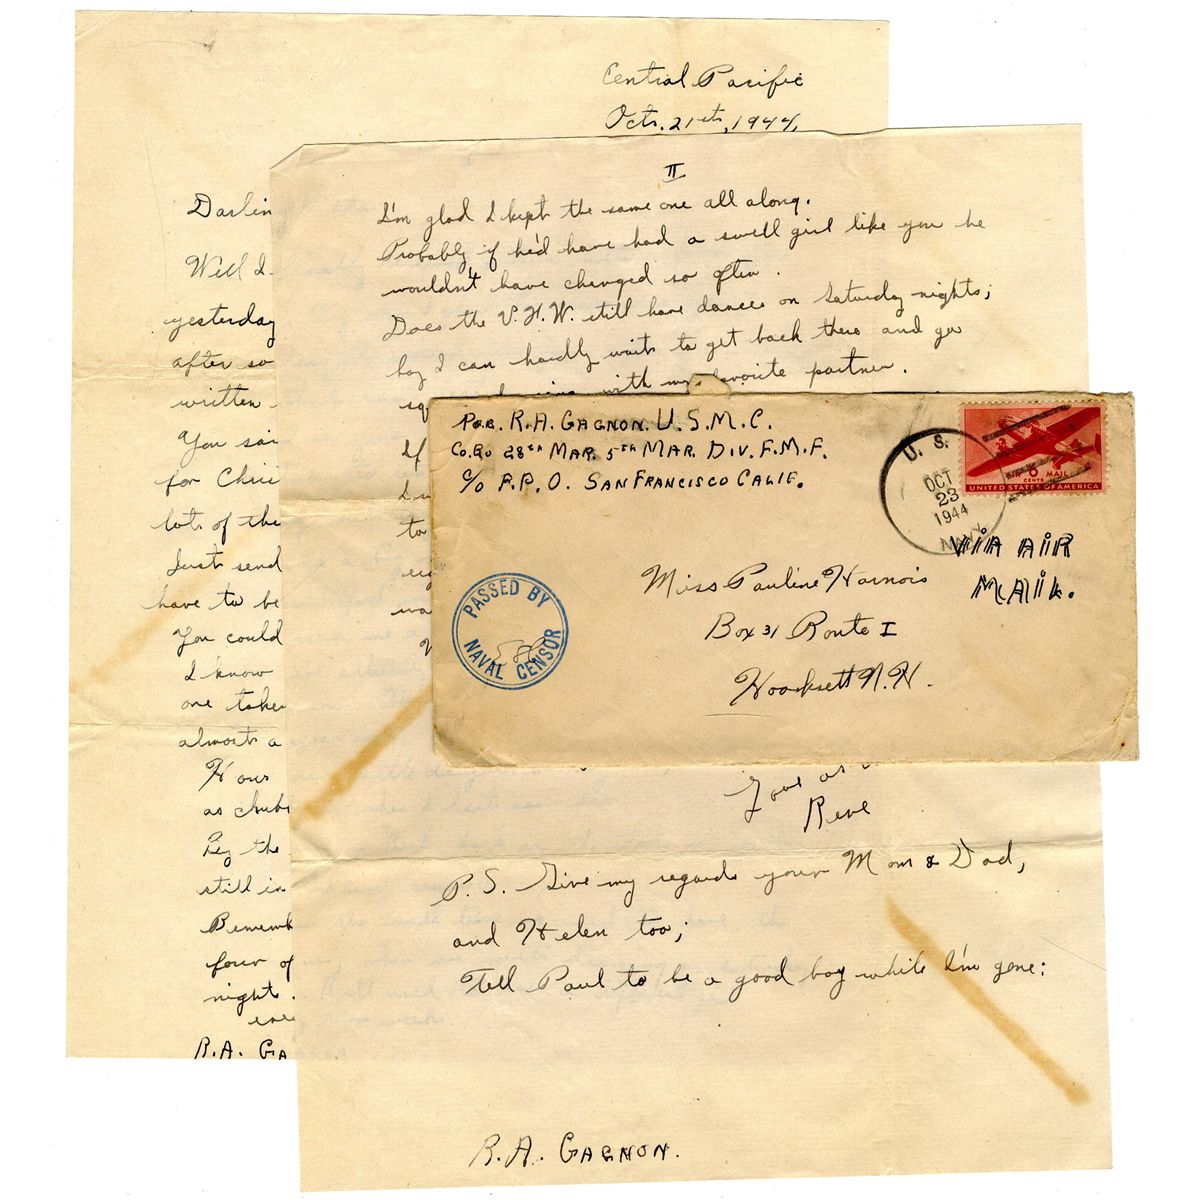 Central Pacific
Oct. 21st, 1944,
Darlin
Well I
yesterday
after so
written
You sai
for Chri
lots of the
Just send
have to be
You could
I know
one taken
almost a
How
as chub
By the
still in
Rememb
four of
night.
R.A. GA
II
I'm glad I kept the same one all along.
Probably if he'd have had a swell girl like you he
wouldn't have changed so often.
Does the V.F.W. still have dances on Saturday nights;
boy I can hardly wait to get back there and go
squ with my favorite partner.
If
to
Love as
Rene
P.S. Give my regards your Mom & Dad,
and Helen too;
Tell Paul to be a good boy while I'm gone:
R.A. GAGNON.
R.A. GAGNON. U.S.M.C.
Co. 28th MAR. 5th MAR. DIV. F.M.F.
C/O F.P.O. SAN FRANCISCO CALIF.
U.S.
OCT
23
1944
NAVY
6 CENTS
AIR MAIL
UNITED STATES OF AMERICA
VIA AIR
MAIL.
Miss Pauline Harnois
Box 31 Route I
Hooksett N.H.
PASSED BY
NAVAL CENSOR